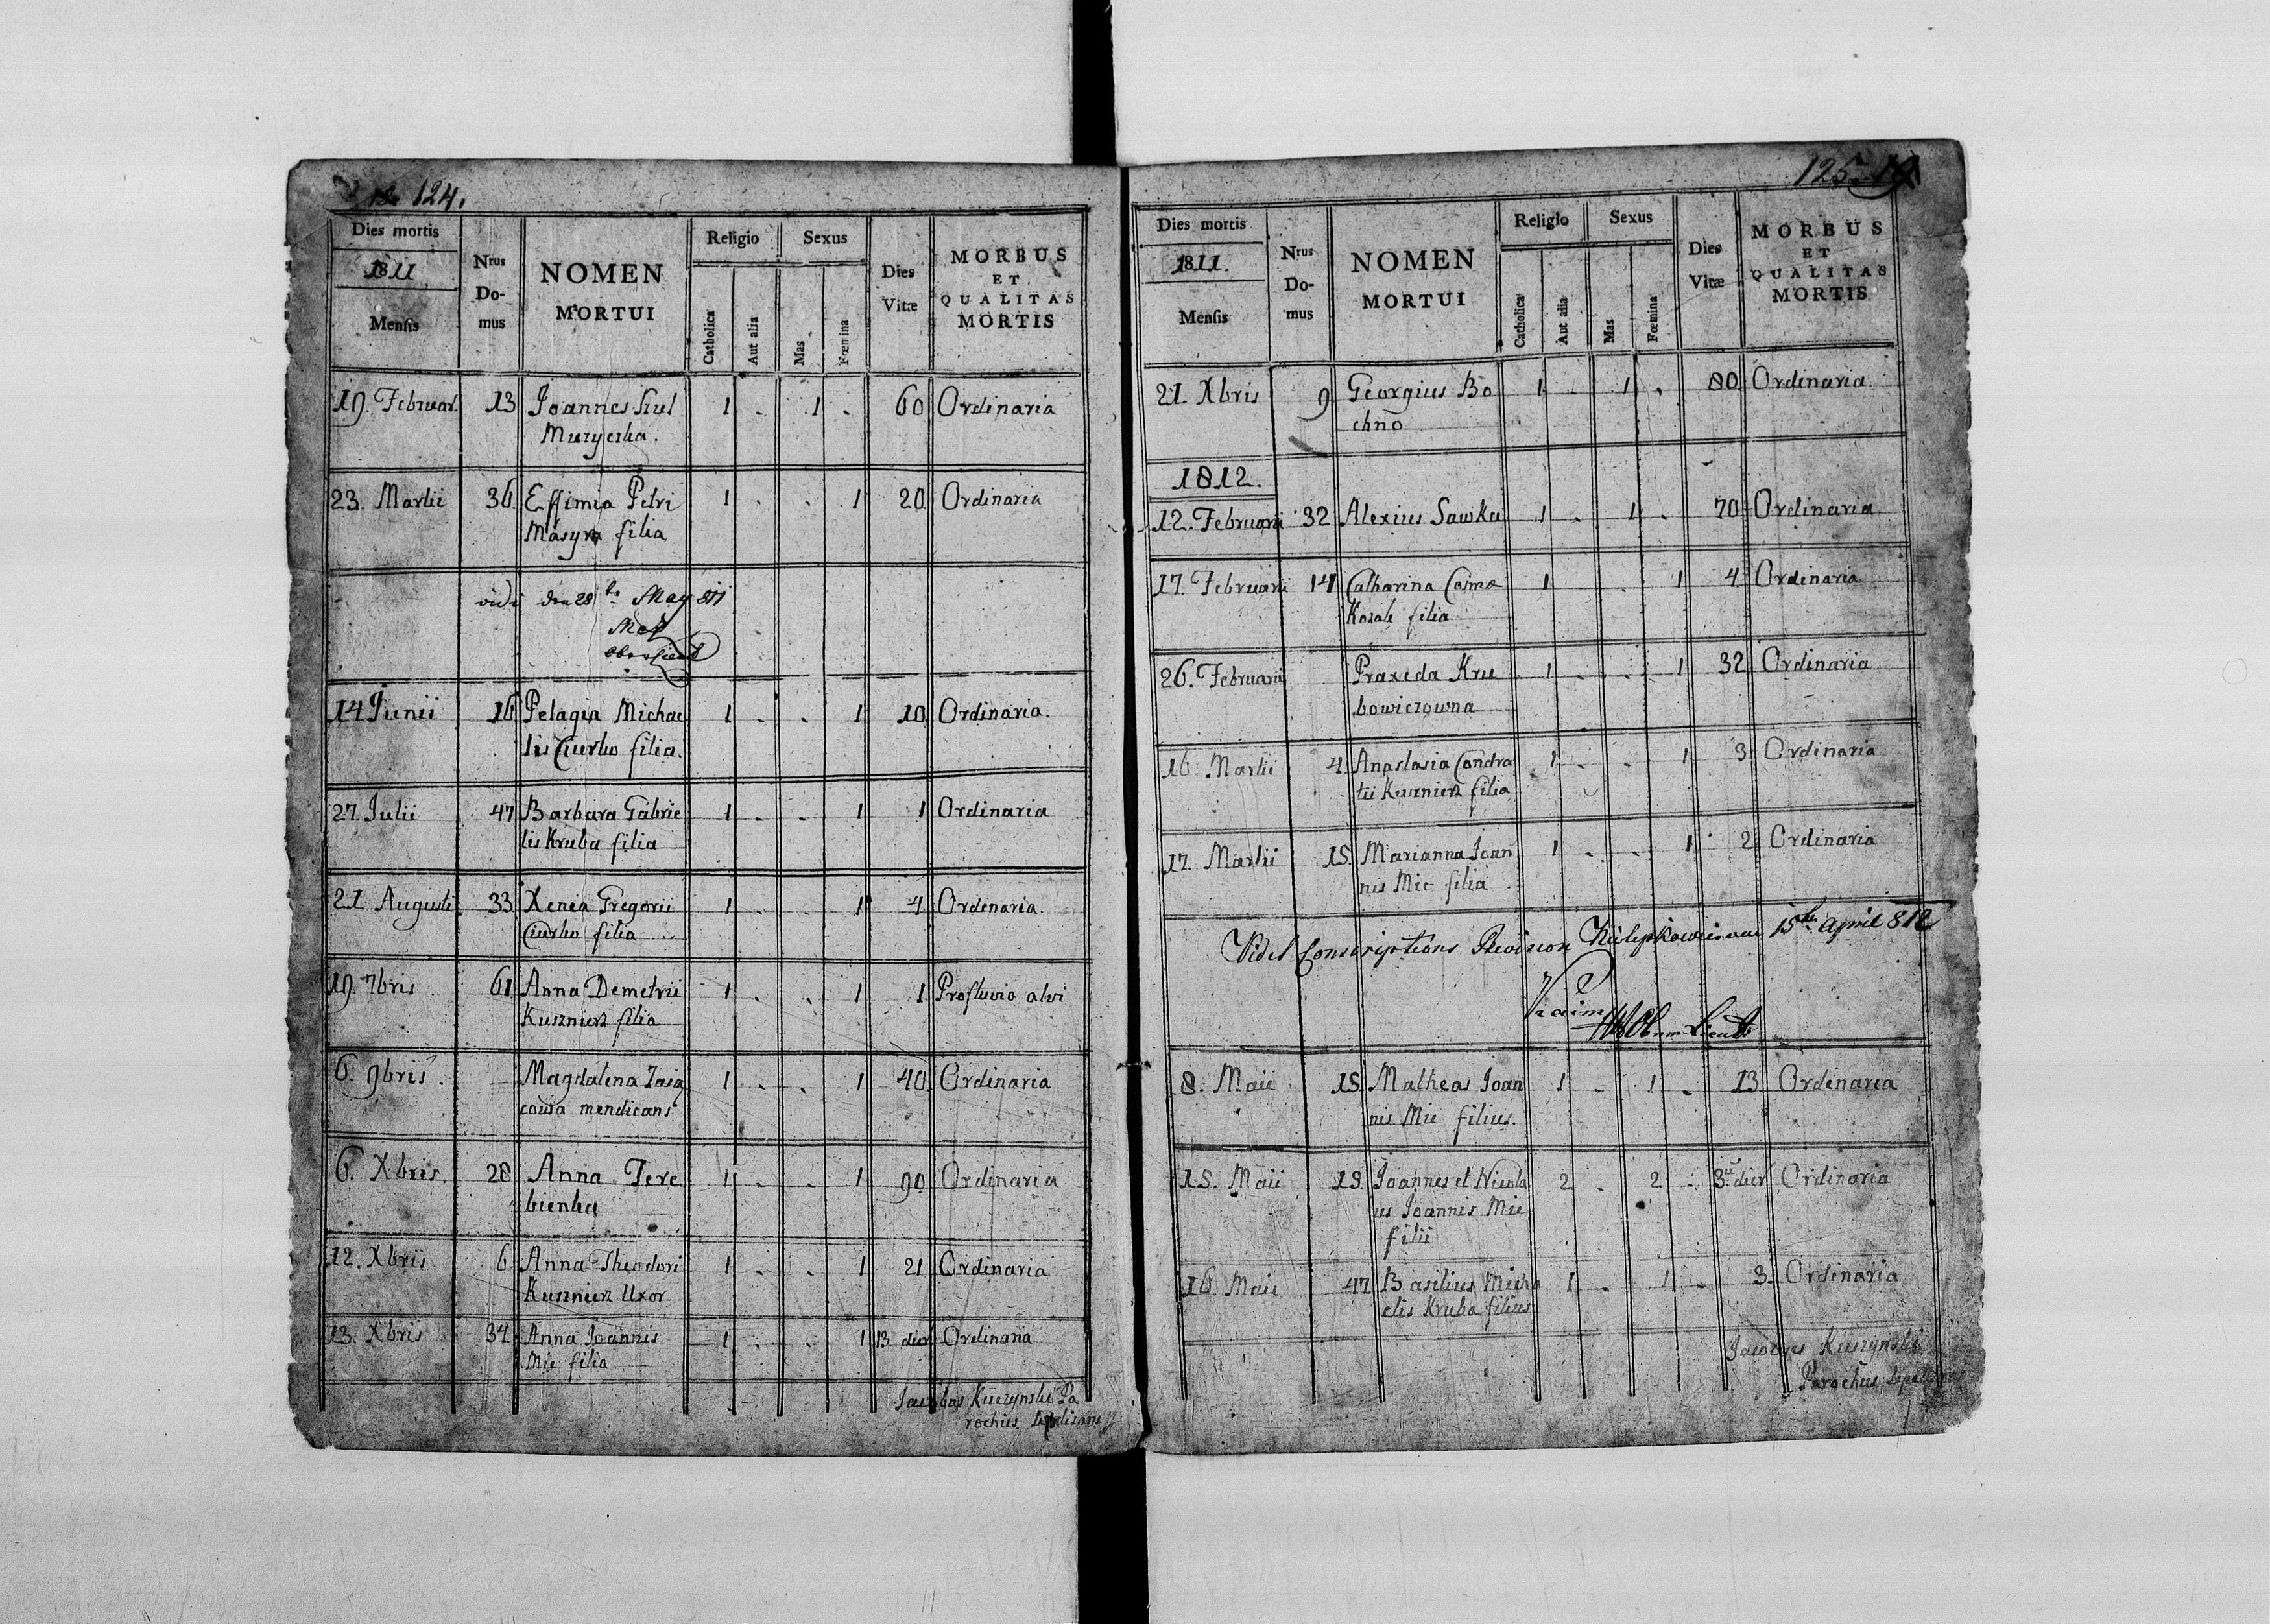 124.
Dies mortis
1811
Mensis
Nrus
Do-
mus
NOMEN
MORTUI
Religio
Sexus
Catholica
Aut alia
Mas
Fœmina
Dies
Vitæ
MORBUS
ET
QUALITAS
MORTIS
19. Februar. 13 Joannes 1 . 1 . 60 Ordinaria
23. Martii 36. Effimia Petri 1 . . 1 20 Ordinaria
filia
vidi den 28 May 811
14 Junii 16 Pelagia Michae 1 . . 1 10 Ordinaria.
lis Ciurko filia.
27. Julii 47 Barbara Gabrie 1 . . 1 1 Ordinaria
lis Kruba filia
21. Augusti 33 Xenia Gregorii 1 . . 1 4 Ordinaria
Ciurko filia
19. 7bris 61 Anna Demetrii 1 . . 1 1 Profluvio alvi
Kusznierz filia
6. 9bris. Magdalena 1 . . 1 40 Ordinaria
mendicans
6. Xbris. 28 Anna Tere 1 . . 1 90 Ordinaria
bienka
12. Xbris 6 Anna Theodori 1 . . 1 21 Ordinaria
Kusznierz Uxor
13. Xbris 34. Anna Joannis 1 . . 1 13 dier Ordinaria
Mic filia
Jacobus Kuczynski Pa
rochus
125
Dies mortis
1811.
Mensis
Nrus
Do-
mus
NOMEN
MORTUI
Religio
Sexus
Catholica
Aut alia
Mas
Fœmina
Dies
Vitæ
MORBUS
ET
QUALITAS
MORTIS
21. Xbris 9 Georgius Bo 1 . 1 . 80 Ordinaria
chno
1812.
12. Februarii 32 Alexius Sawka 1 . 1 . 70 Ordinaria
17. Februarii 14 Catharina Cosmæ 1 . . 1 4 Ordinaria
Kozak filia
26. Februarii Praxeda Kru 1 . . 1 32 Ordinaria
bowiczowna
16. Martii 4 Anastasia Condra 1 . . 1 3 Ordinaria
tii Kusznierz filia
17. Martii 15. Marianna Joan 1 . . 1 2 Ordinaria
nis Mic filia
Vidit Conscriptions Revision 15 April 812
8. Maii 15. Matheas Joan 1 . 1 . 13 Ordinaria
nis Mic filius.
15. Maii 15. Joannes et Nicola 2 . 2 . 3 dier Ordinaria
us Joannis Mic
filii
16. Maii 47 Basilius Micha 1 . 1 . 3 Ordinaria
elis Kruba filius
Jacobus Kuczynski
Parochus